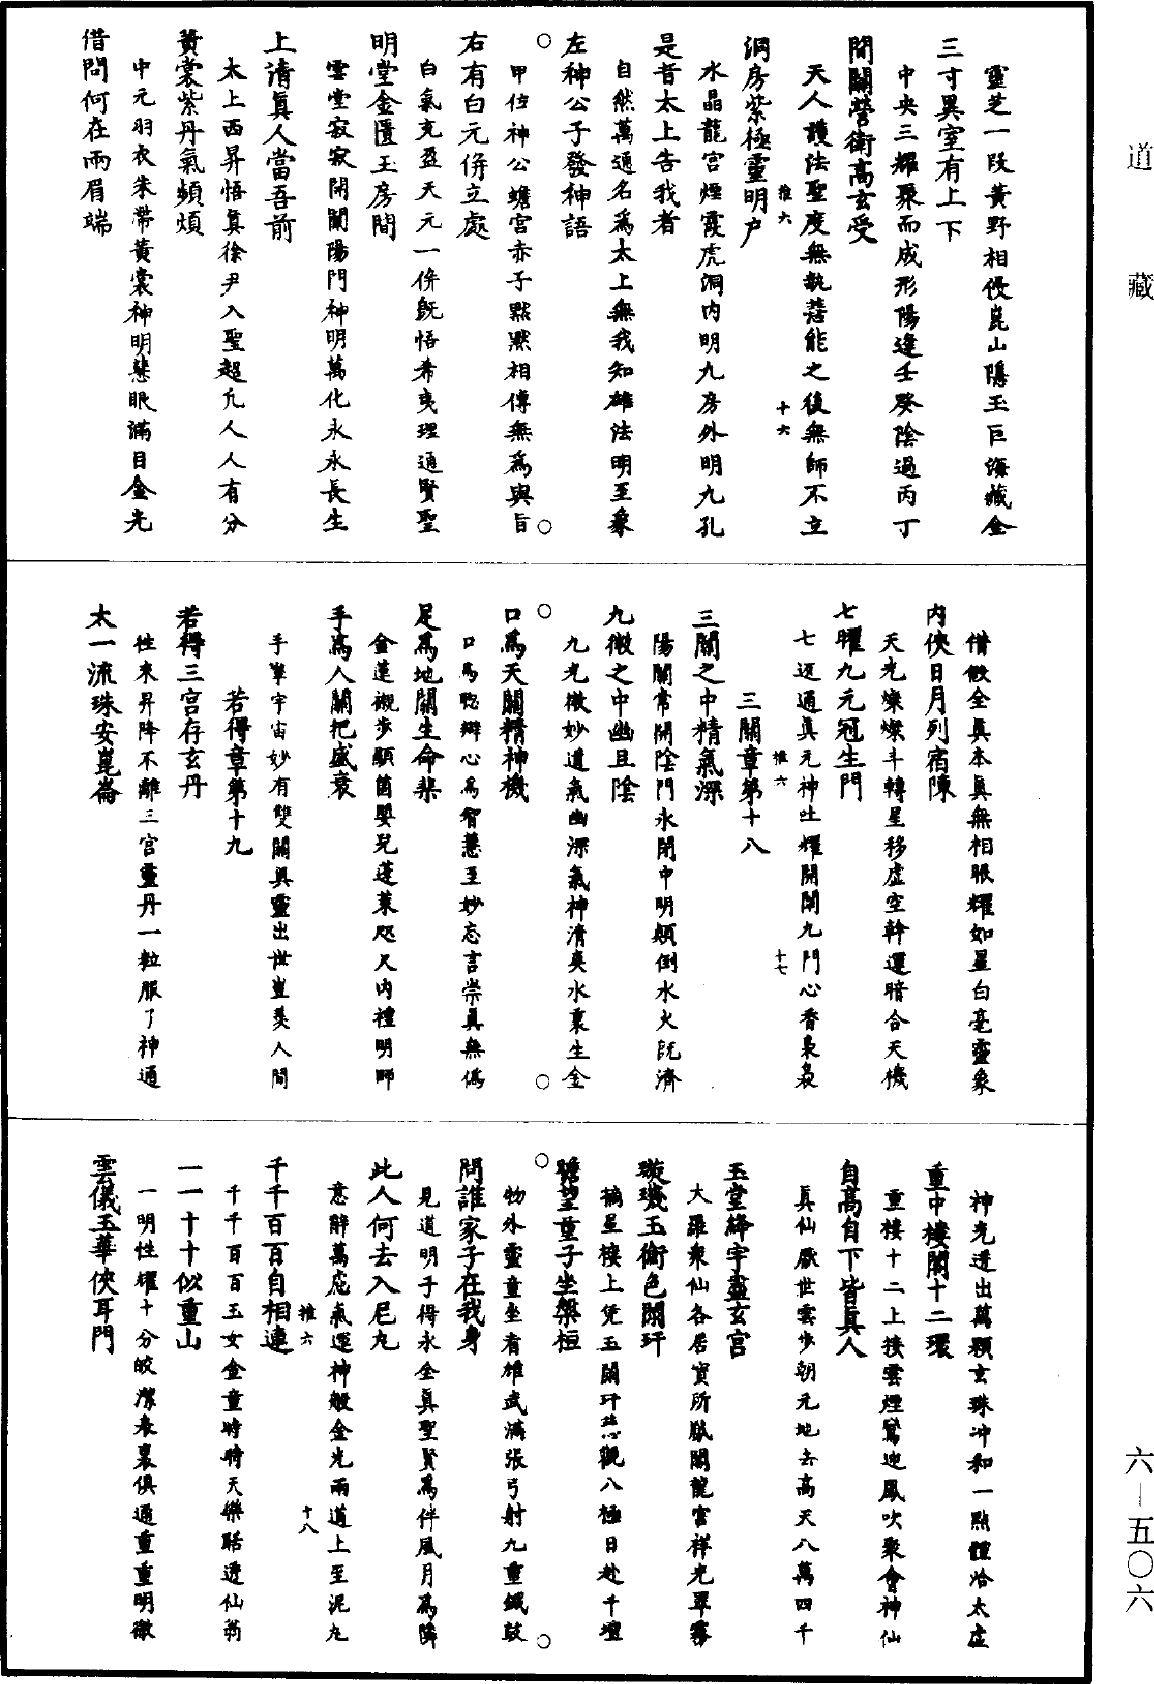 道藏
六—五〇六
靈芝一段黃野相侵崑山隱玉巨海藏金
三寸異室有上下
中央三耀聚而成形陽逢壬癸陰過丙丁
間關營衛高玄受
天人護法聖度無執菩能之後無師不立
推六 十六
洞房紫極靈明戶
水晶龍宮煙霞虎洞內明九房外明九孔
是昔太上告我者
自然萬通名爲太上無我知雄法明至象
左神公子發神語
甲位神公蟾宮赤子默默相傳無爲與旨
右有白元併立處
白氣充盈天元一併既悟希夷理通賢聖
明堂金匱玉房間
雲堂寂寂開闡陽門神明萬化永永長生
上清真人當吾前
太上西昇悟真徐尹入聖超凡人人有分
黃裳紫丹氣頻煩
中元羽衣朱帶黃裳神明慧眼滿目金光
借問何在兩眉端
借假全真本真無相眼耀如星白毫靈象
內俠日月列宿陳
天光燦燦斗轉星移虛空幹運暗合天機
七曜九元冠生門
七返通真元神吐耀開闡九門心香裊裊
推六 十七
三關章第十八
三關之中精氣深
陽關常開陰門永閉中明顛倒水火既濟
九微之中幽且陰
九光微妙道氣幽深氣神清爽水裏生金
口爲天關精神機
口爲聰辯心爲智慧至妙忘言崇真無僞
足爲地關生命棐
金蓮襯步顯箇嬰兒蓬萊咫尺內禮明師
手爲人關把盛衰
手擎宇宙妙有雙關與靈出世豈羨人間
若得章第十九
若得三宮存玄丹
往來昇降不離三宮靈丹一粒服了神通
太一流珠安崑崙
神光透出萬顆玄珠沖和一點體洽太虛
重中樓閣十二環
重樓十二上接雲煙鸞迎鳳吹聚會神仙
自高自下皆真人
真仙厭世雲步朝元地去高天八萬四千
玉堂絳宇盡玄宮
大羅衆仙各居寶所駄關龍宮祥光翠霧
璇璣玉衡色闌玕
摘星樓上凭玉闌玕悲觀八極日赴千壇
瞻望童子坐槃桓
物外靈童坐看雄武滿張弓射九重鐵鼓
問誰家子在我身
見道明子得永全真聖賢爲伴風月爲鄰
此人何去入尼丸
意醉萬應氣運神般金光兩道上至泥丸
推六 十八
千千百百自相連
千千百百玉女金童時時天樂聒透仙翁
一一十十似重山
一明性耀十分皎潔表裏俱通重重明徹
雲儀玉華俠耳門